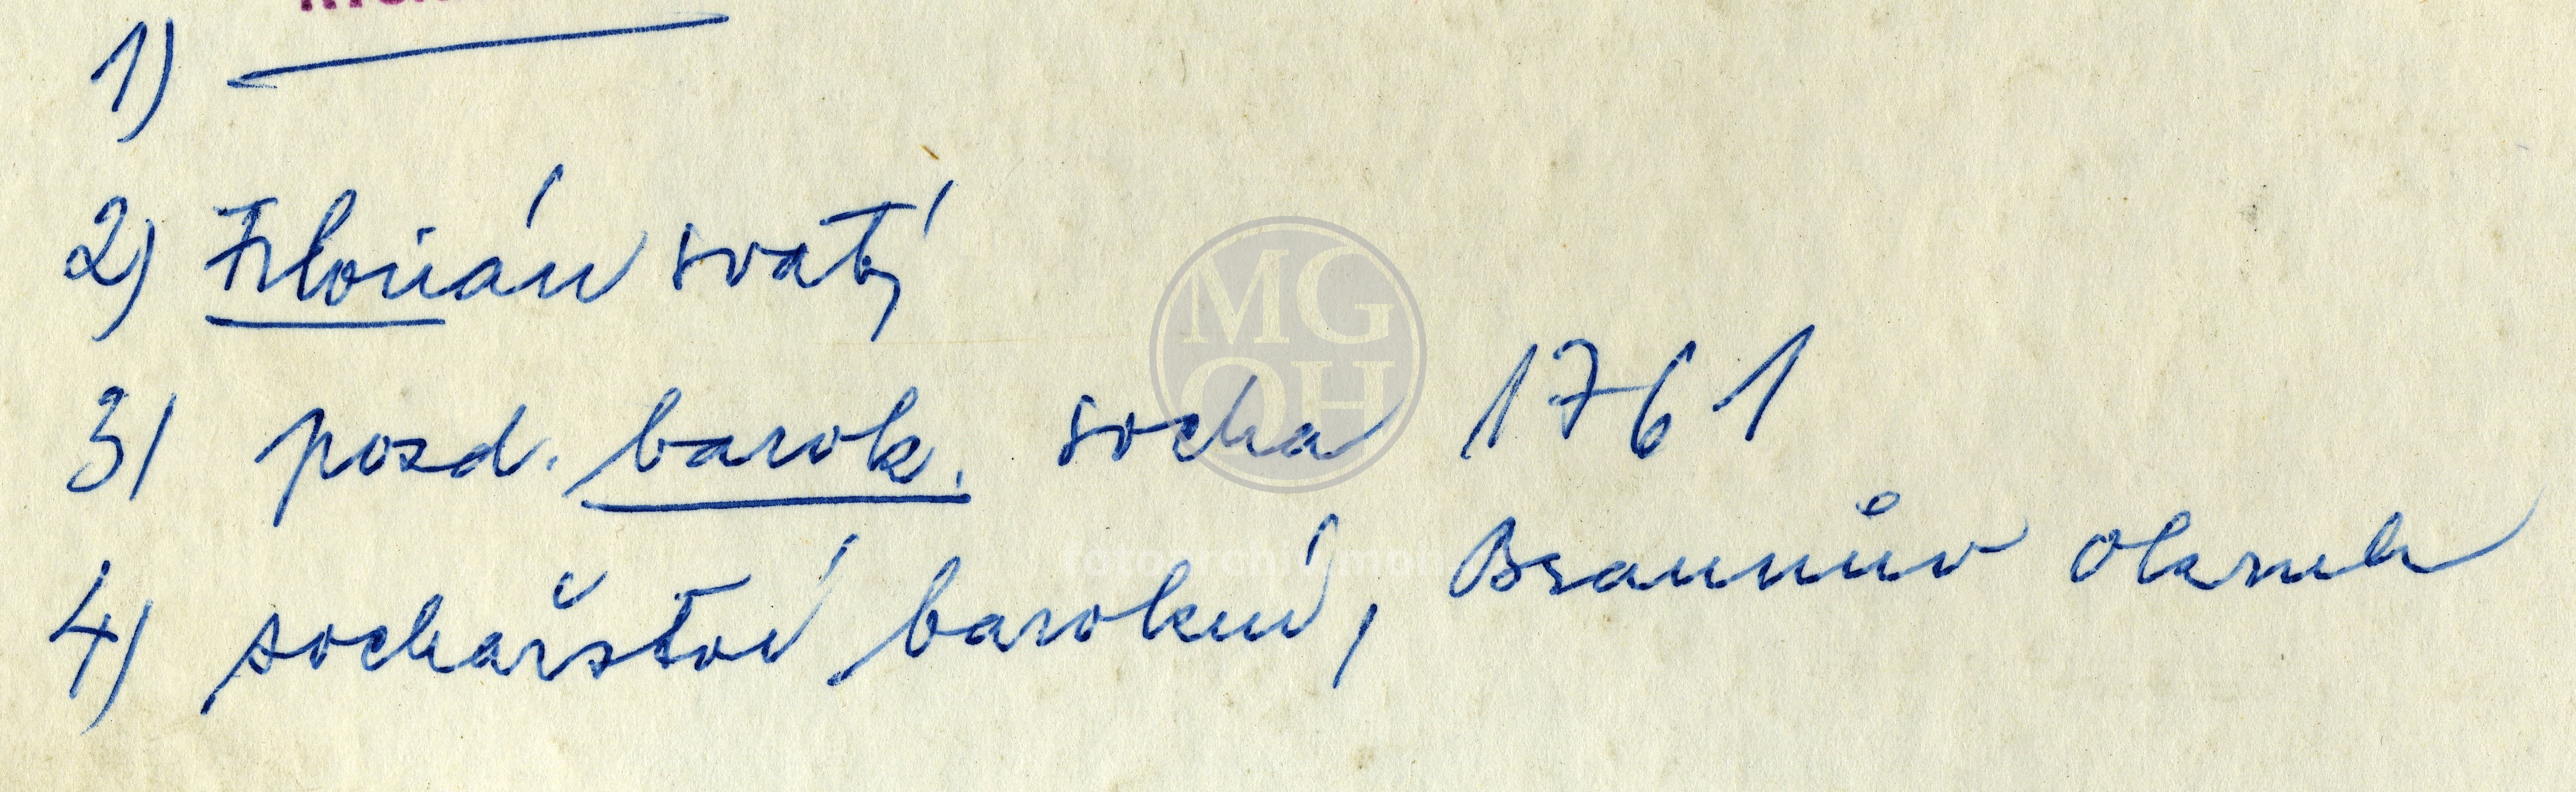 1)
2) Florián svatý
3) pozd. barok. socha 1761
4) sochařství barokní, Braunův okruh
MG
OH